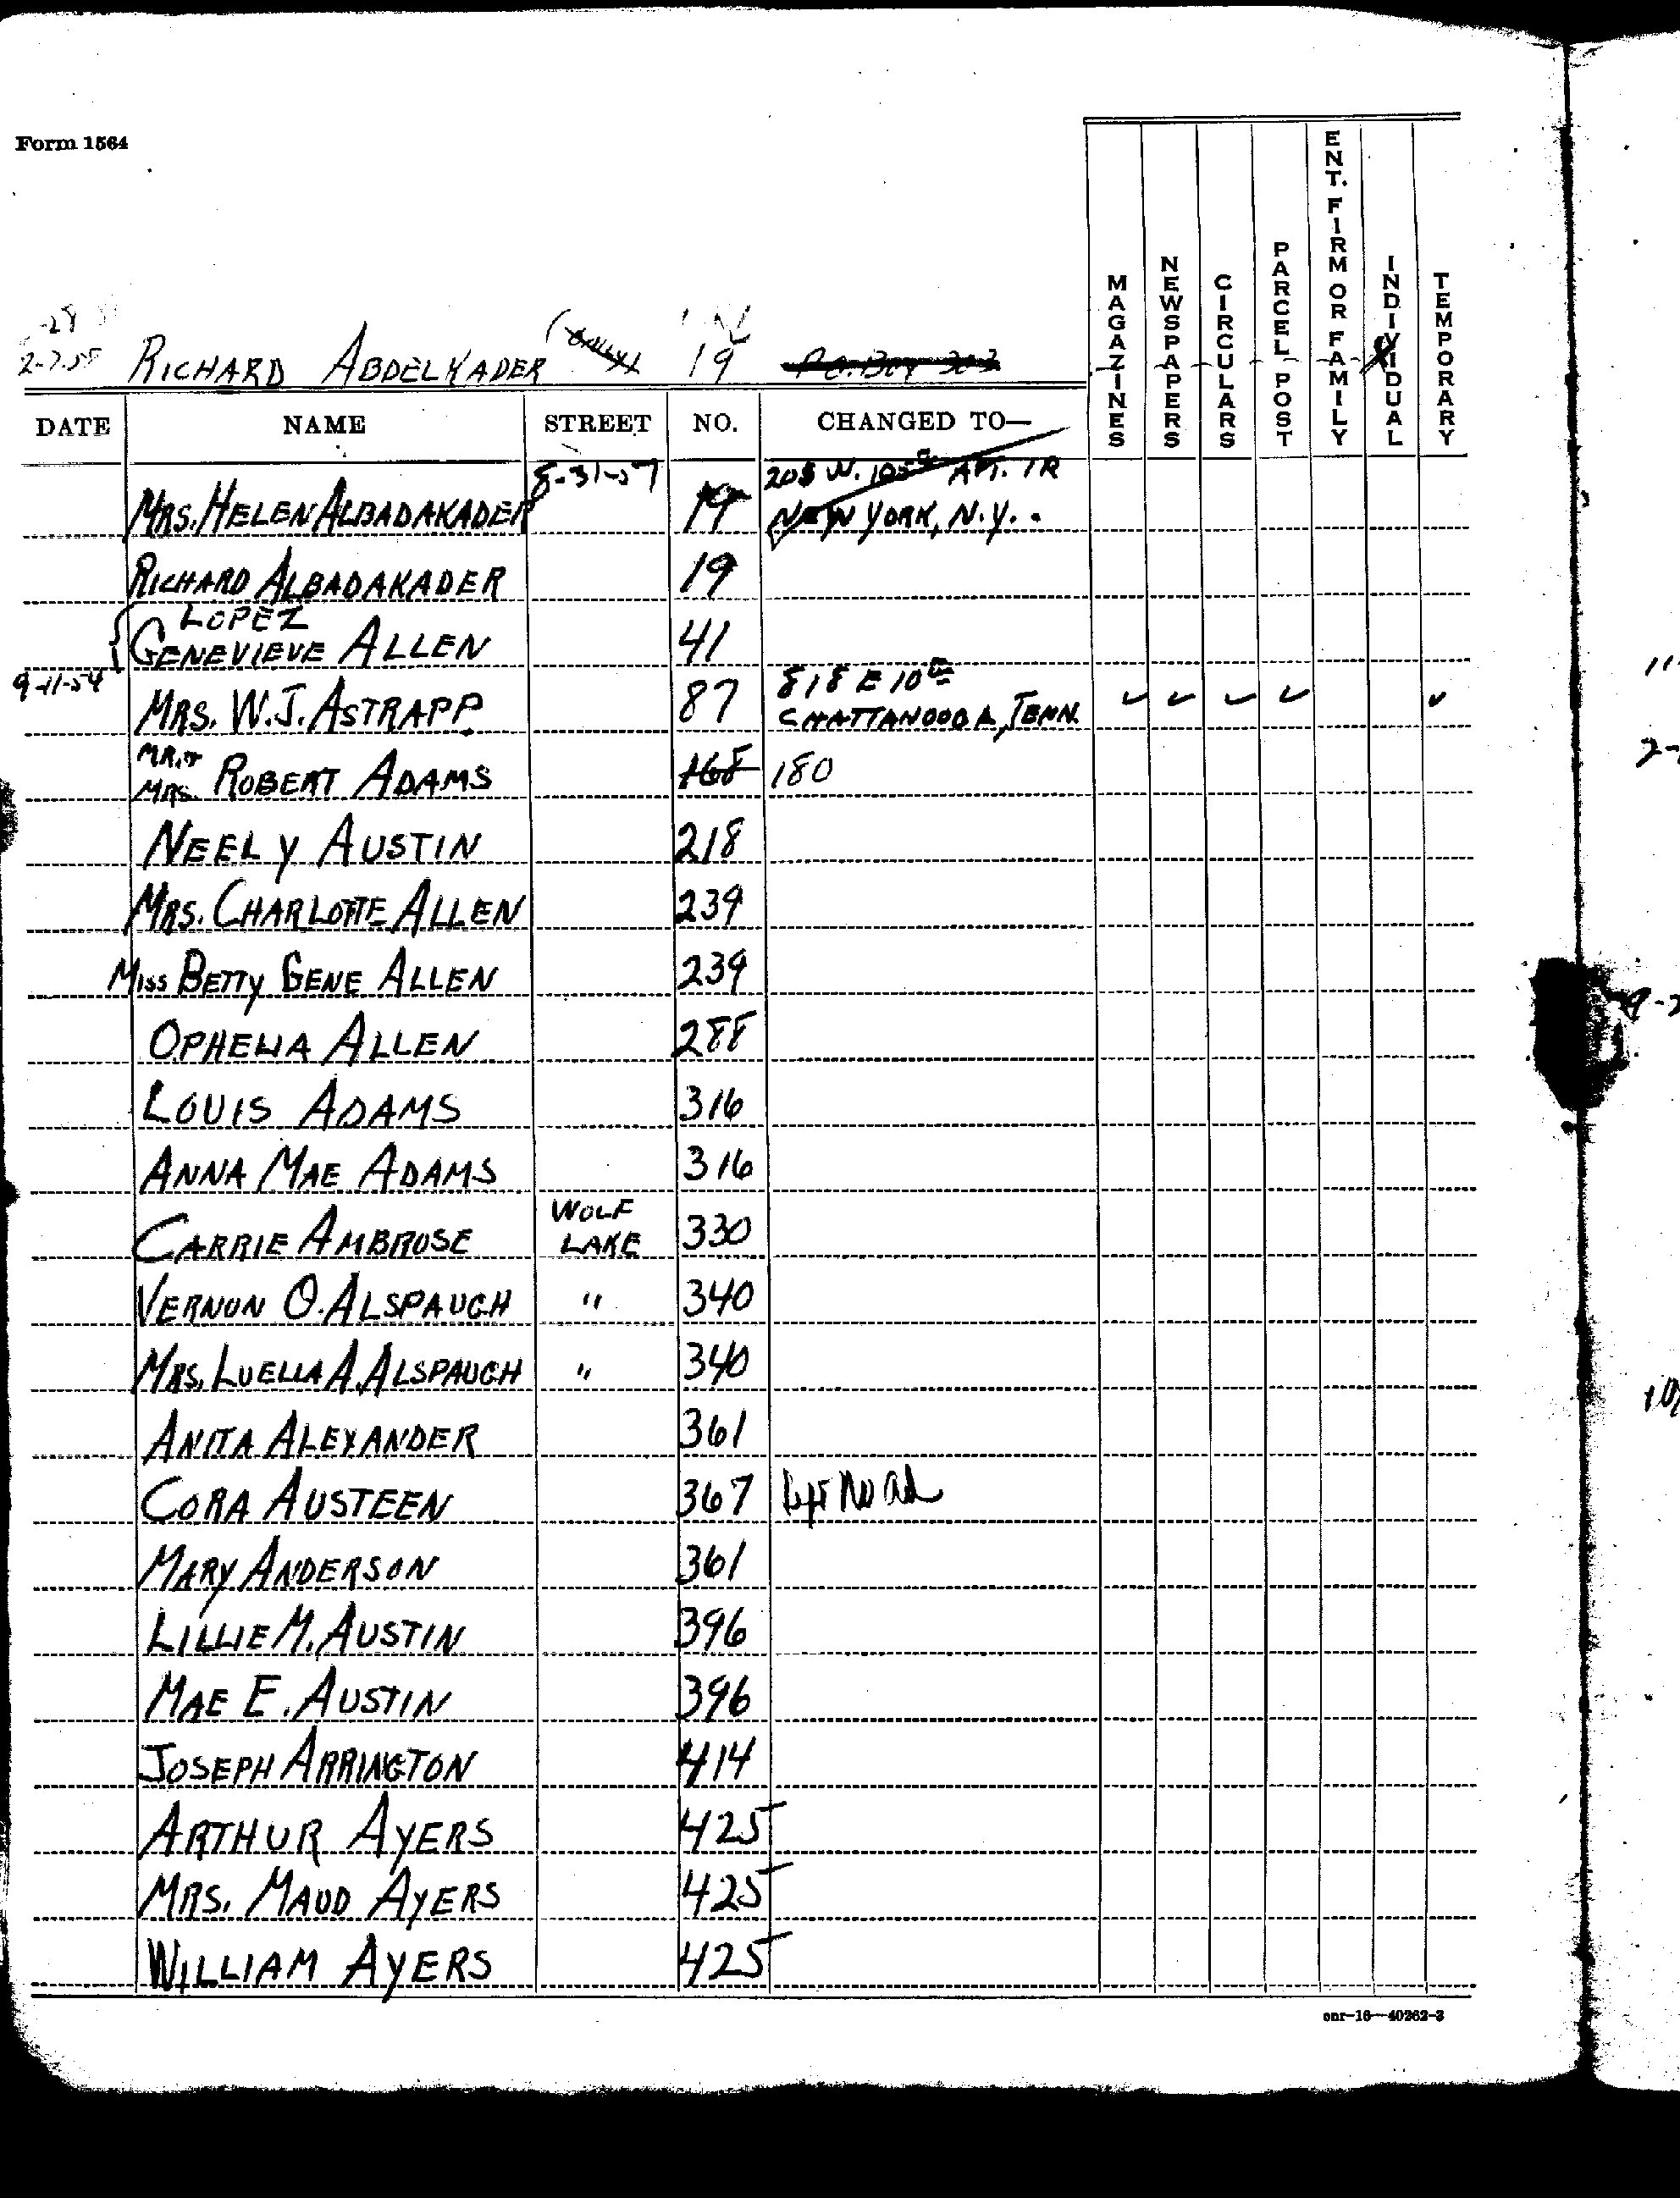 Form 1564
MAGAZINES
NEWSPAPERS
CIRCULARS
PARCEL POST
ENT. FIRM OR FAMILY
INDIVIDUAL
TEMPORARY
2-7-55 RICHARD ABDELKADER 19 P.O. Box 303
DATE NAME STREET NO. CHANGED TO—
8-31-57 205 W. 105 APT. 1R
MRS. HELEN ALBADAKADER 19 NEW YORK, N.Y.
RICHARD ALBADAKADER 19
LOPEZ
GENEVIEVE ALLEN 41
9-11-54 818 E 10th
MRS. W.J. ASTRAPP 87 CHATTANOOGA, TENN. ✓ ✓ ✓ ✓ ✓
MR. +
MRS. ROBERT ADAMS 168 180
NEELY AUSTIN 218
MRS. CHARLOTTE ALLEN 239
MISS BETTY GENE ALLEN 239
OPHELIA ALLEN 288
LOUIS ADAMS 316
ANNA MAE ADAMS 316
CARRIE AMBROSE WOLF LAKE 330
VERNON O. ALSPAUGH " 340
MRS. LUELLA A. ALSPAUGH " 340
ANITA ALEXANDER 361
CORA AUSTEEN 367 Left No ad
MARY ANDERSON 361
LILLIE M. AUSTIN 396
MAE E. AUSTIN 396
JOSEPH ARRINGTON 414
ARTHUR AYERS 425
MRS. MAUD AYERS 425
WILLIAM AYERS 425
onr—16—40262-3